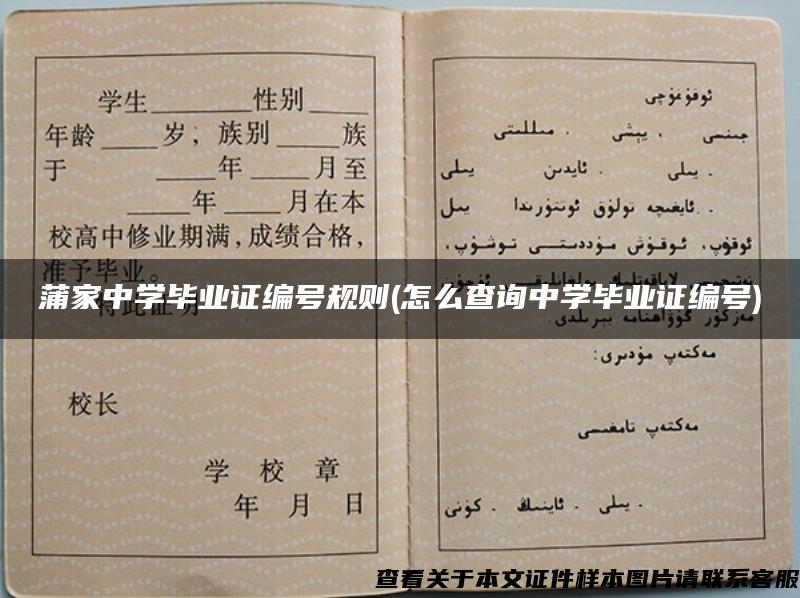 学生________性别____
年龄____岁；族别____族
于 ____年____月至
____年____月在本
校高中修业期满，成绩合格，
准予毕业。
特此证明
校长
学 校 章
年 月 日
ئوقۇغۇچى
جىنسى ، يېشى ، مىللىتى
. يىلى . ئايدىن يىلى
. ئايغىچە تولۇق ئوتتۇرىدا يىل
ئوقۇپ، ئوقۇش مۇددىتى توشۇپ،
مەكتەپ مۇدىرى:
مەكتەپ تامغىسى
. يىلى . ئاينىڭ . كۈنى
蒲家中学毕业证编号规则(怎么查询中学毕业证编号)
查看关于本文证件样本图片请联系客服